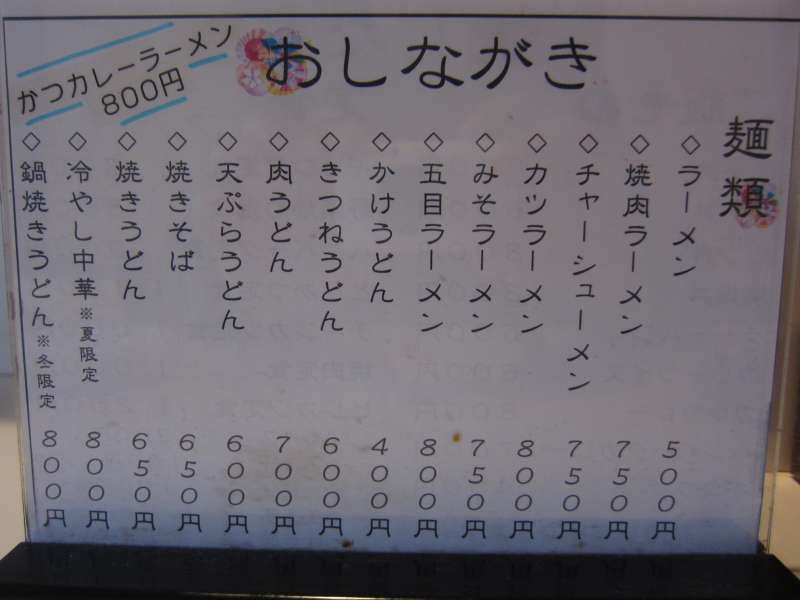 おしながき
かつカレーラーメン
800円
麺類
◇ラーメン 500円
◇焼肉ラーメン 750円
◇チャーシューメン 750円
◇カツラーメン 800円
◇みそラーメン 750円
◇五目ラーメン 800円
◇かけうどん 400円
◇きつねうどん 600円
◇肉うどん 700円
◇天ぷらうどん 600円
◇焼きそば 650円
◇焼きうどん 650円
◇冷やし中華※夏限定 800円
◇鍋焼きうどん※冬限定 800円